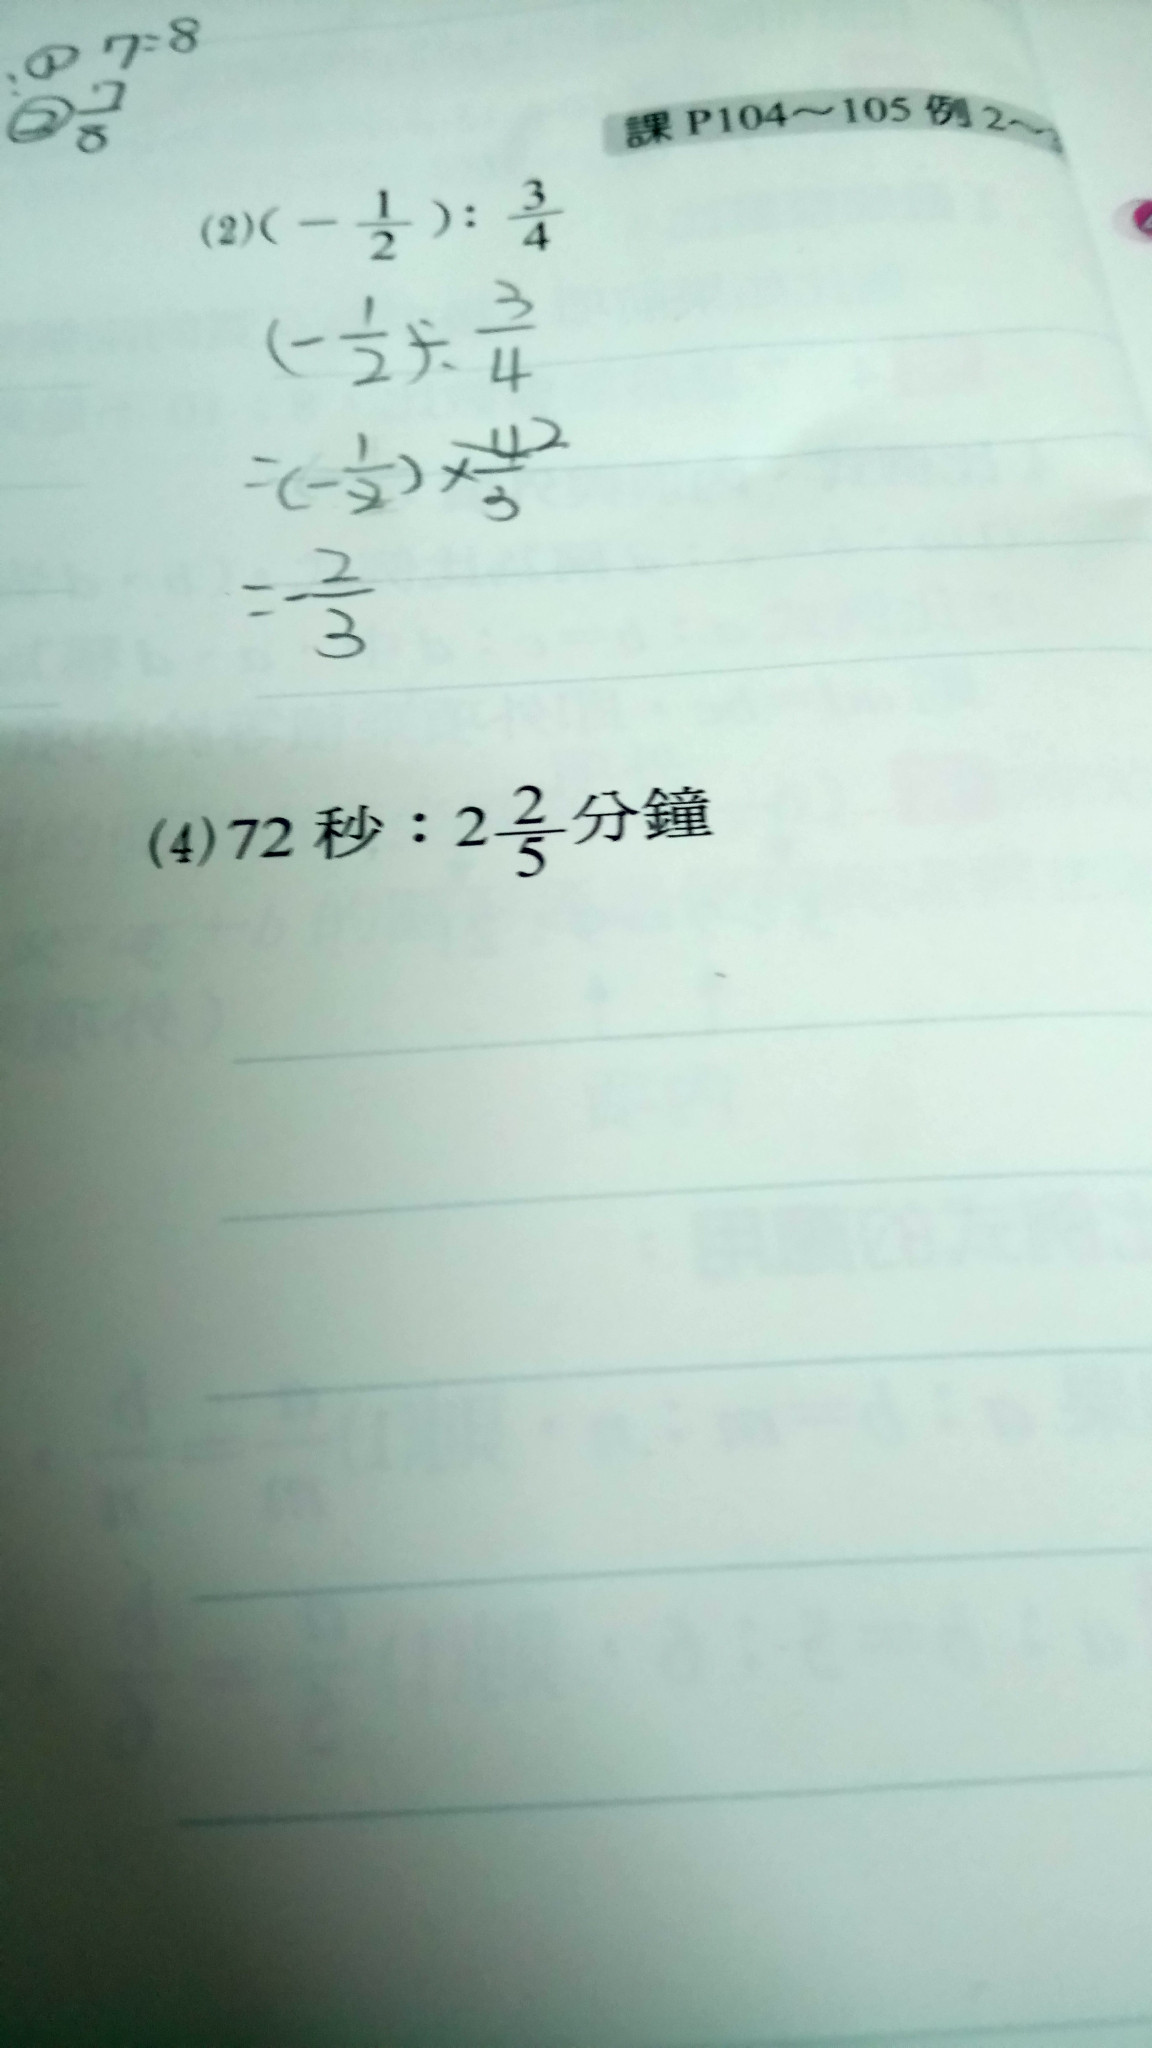 ① 7:8
② 7/8
課 P104～105 例 2～
(2)(－1/2)：3/4
(-1/2)÷3/4
=(-1/2)×4/3 2
=-2/3
(4) 72 秒：2 2/5 分鐘